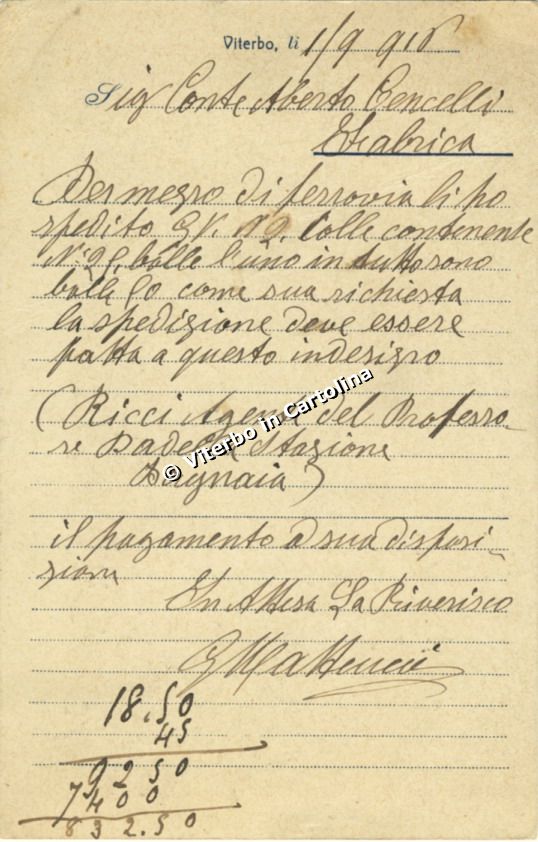 Viterbo, li 1/9 915
Sig Conte Alberto Cencelli
Fabrica
Per mezzo di ferrovia li ho
spedito GV. N 2. Colle contenente
N. 25. balle l'uno in tutto sono
balle 50 come sua richiesta
la spedizione deve essere
fatta a questo indesizzo
(Ricci Agente del Professo-
re Stazione
Bagnaia)
il pagamento a sua disposi-
zione
In Attesa La Riverisco
G Matteucci
18.50
45
9250
7400
832.50
© Viterbo in Cartolina